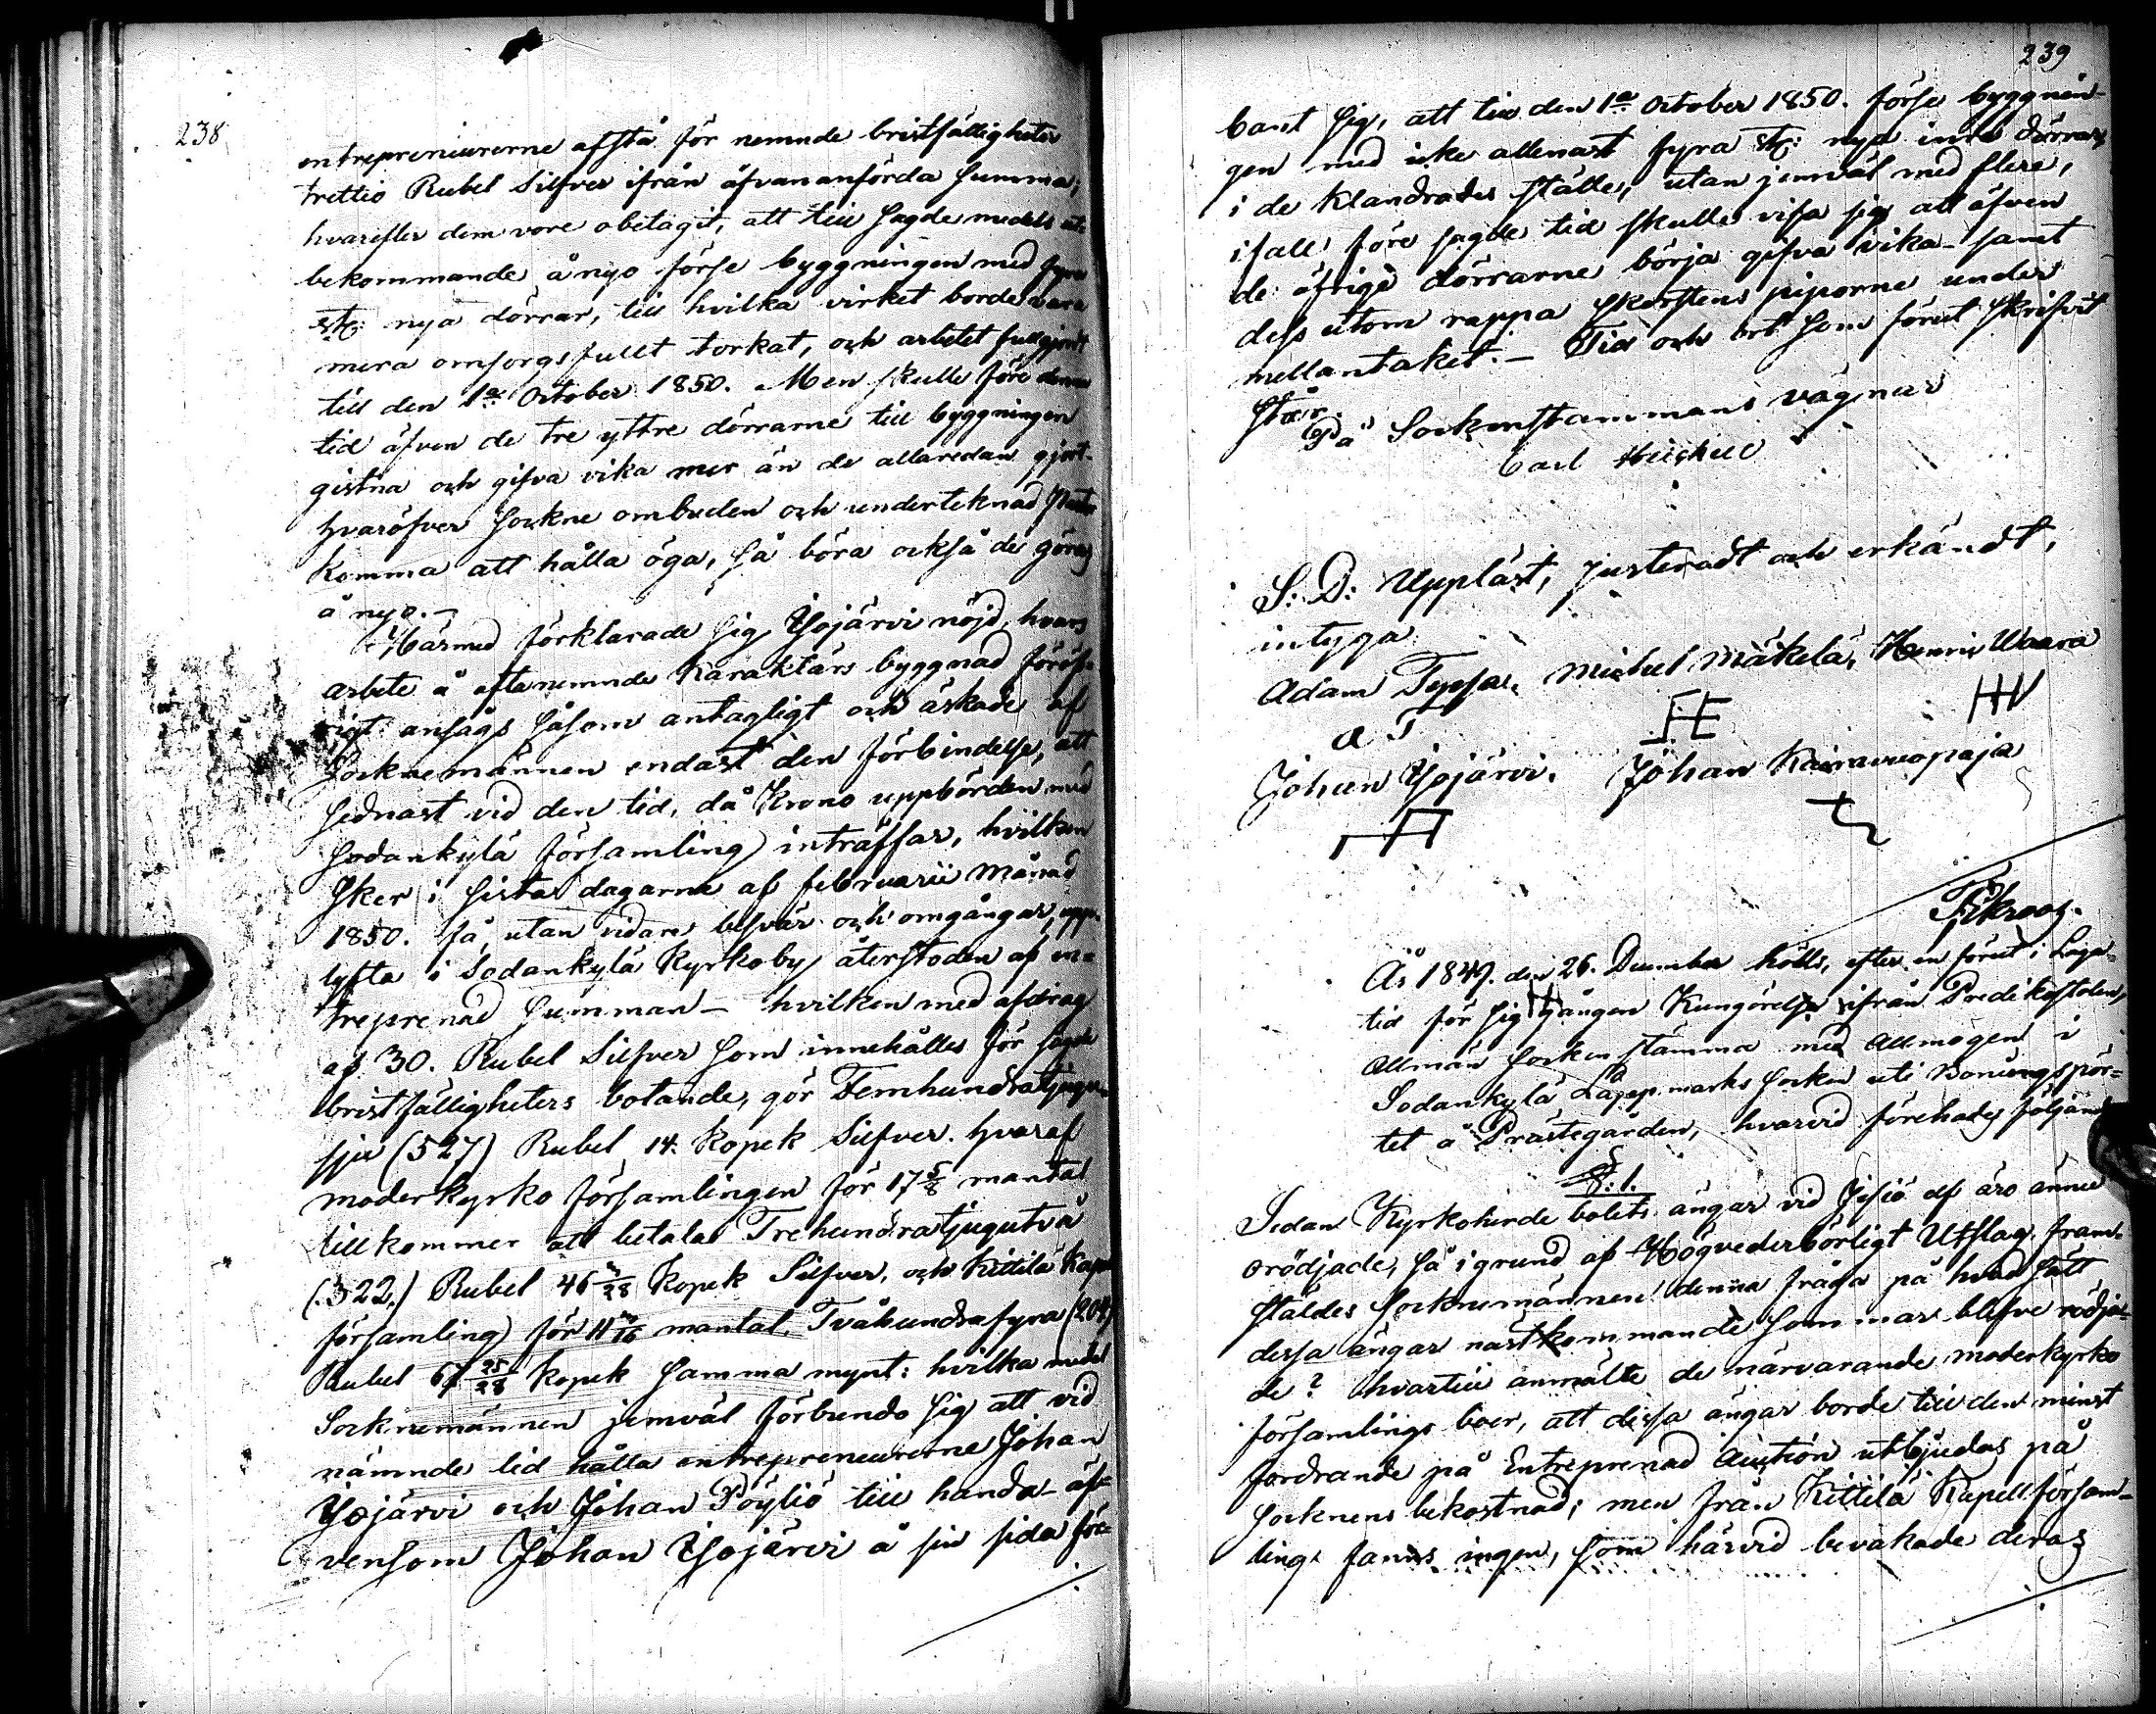 238
entrepreneurerne afstå för nemnde bristfälligheter
trettio Rubel Silfver ifrån åfvananförda summa,
hvarefter dem vore obetagit, att till sagde medels ut-
bekommande å nyo förse byggningen med fyra
st: nya dörrar, till hvilka virket borde vara
mera omsorgsfullt torkat, och arbetet fullgjordt
till den 1a October 1850. Men skulle före denna
tid äfven de tre yttre dörrarne till byggningen
gistna och gifva vika mer än de allaredan gjort-
hvaröfver sockne ombuden och underteknad Pastor
komma att hålla öga, så böra också de göras
å nyo.-
Härmed förklarade sig Ysojärvi nöjd, hvars
arbete å ofta nemnde Karaktärs byggnad föröf-
rigt ansågs såsom antagligt och äskade af
Socknemännen endast den förbindelse, att
sednast vid den tid, då Krono uppbörden med
Sodankylä församling inträffar, hvilken
sker i sista dagarna af februarii månad
1850. få, utan vidare besvär och omgångar, upp-
lyfta i Sodankylä Kyrkoby återstoden af en-
treprenad summan - hvilken med afdrag
af 30. Rubel Silfver som innehålles för sagde
bristfälligheters botande, gör Femhundratjugu-
sju (527) Rubel 14. Kopek Silfver. hvaraf
moderkyrko församlingen för 17 5/8 mantal
tillkommer att betala Trehundratjugutvå
(322.) Rubel 46 3/28 kopek Silfver, och Kittilä Kapell
församling för 11 3/16 mantal. Tvåhundrafyra (204)
Rubel 67 25/28 kopek samma mynt: hvilka medel
Socknemännen jemväl förbundo sig att vid
nämnde tid hålla entrepreneurerne Johan
Ysojärvi och Johan Pöyliö till handa - äf-
vensom Johan Ysojärvi å sin sida för-
239
bant sig, att till den 1a October 1850. förse byggnin-
gen med icke allenast fyra st: nya inre dörrar,
i de klandrades ställe, utan jemväl med flere,
ifall före sagde tid skulle visa sig att äfven
de öfrige dörrarne börja gifva vika - samt
dess utom rappa skorstens piporne under
mellantaket. - Tid och ort som förut skrifvit
står.
På Sockenstammans vägnar
Carl Heickell
S: D: Uppläst, justeradt och erkändt,
intyga
Adam Teppa. Michel Mäkelä, Henric Waara
A T
Johan Ysojärvi. Johan Kairavuopaja
År 1849. den 26. December hölls, efter en förut i Laga
tid för sig gången Kungörelse ifrån Predikostolen,
Allmän sockenstämma med Allmogen i
Sodankylä Lappmarks socken uti Boningspör-
tet å Prästegården, hvarvid förehades följande
§: 1.
Sedan Kyrkoherde bolets ängar vid Jesiö elf äro ännu
orödjade, så i grund af Högvederbörligt Utslag fram-
stäldes Socknemännen denna fråga på hvad sätt
dessa ängar nästkommande sommar blefve rödja-
de? hvartill anmälte de närvarande moderkyrko
församlings boer, att dessa ängar borde till den minst
fordrande på Entreprenad Auction utbjudas på
socknens bekostnad; men från Kittilä Kapellförsam-
ling fanns ingen, som härvid bevakade deras